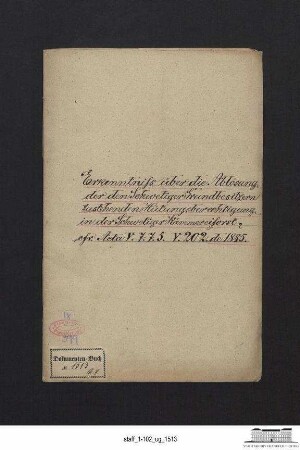 Erkenntniß über die Ablösung
der den Schwetiger Grundbesitzern
zustehenden Hütungsberechtigung
in der Schwetiger Kämmereiforst.
cfr. Acta V. 7. 75. V. 202 de 1885.
Dokumenten-Buch
staff_1-102_ug_1513